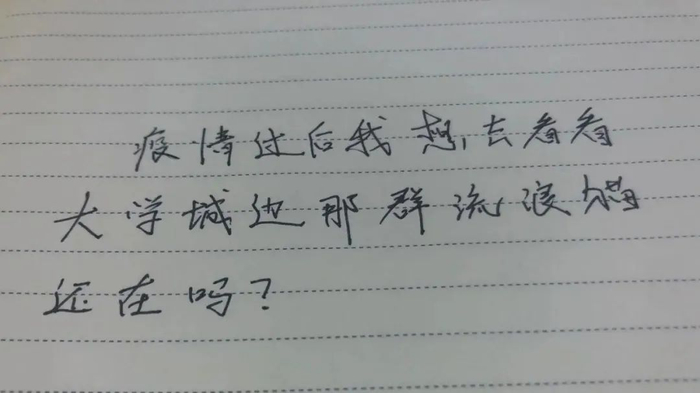 疫情过后我想去看看
大学城边那群流浪猫
还在吗？